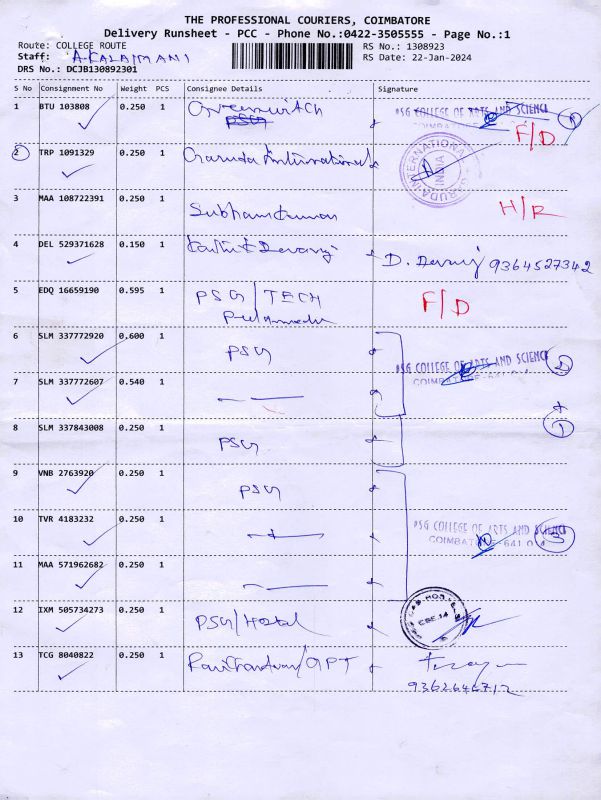 THE PROFESSIONAL COURIERS, COIMBATORE
Delivery Runsheet - PCC - Phone No.:0422-3505555 - Page No.:1
Route: COLLEGE ROUTE
RS No.: 1308923
Staff: A.KALAIMANI
RS Date: 22-Jan-2024
DRS No.: DCJB130892301
S No Consignment No Weight PCS Consignee Details Signature
1 BTU 103808 0.250 1 Greenwitch PSG COLLEGE OF ARTS AND SCIENCE
F/D
2 TRP 1091329 0.250 1 Garuda International
GARUDA INTERNATIONAL INDIA
3 MAA 108722391 0.250 1 Subham Kumar H/R
4 DEL 529371628 0.150 1 Devaraj D. Devaraj 9364527342
5 EDQ 16659190 0.595 1 PSG/TECH F/D
Peelamedu
6 SLM 337772920 0.600 1 PSG PSG COLLEGE OF ARTS AND SCIENCE 2
7 SLM 337772607 0.540 1
+
8 SLM 337843008 0.250 1 PSG 1
9 VNB 2763920 0.250 1 PSG
10 TVR 4183232 0.250 1 PSG COLLEGE OF ARTS AND SCIENCE 3
11 MAA 571962682 0.250 1
12 IXM 505734273 0.250 1 PSG/Hostel
13 TCG 8040822 0.250 1
9362646712